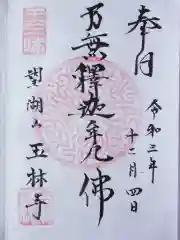 奉拝
令和三年
十二月四日
南無釋迦牟尼佛
望湖山
玉林寺